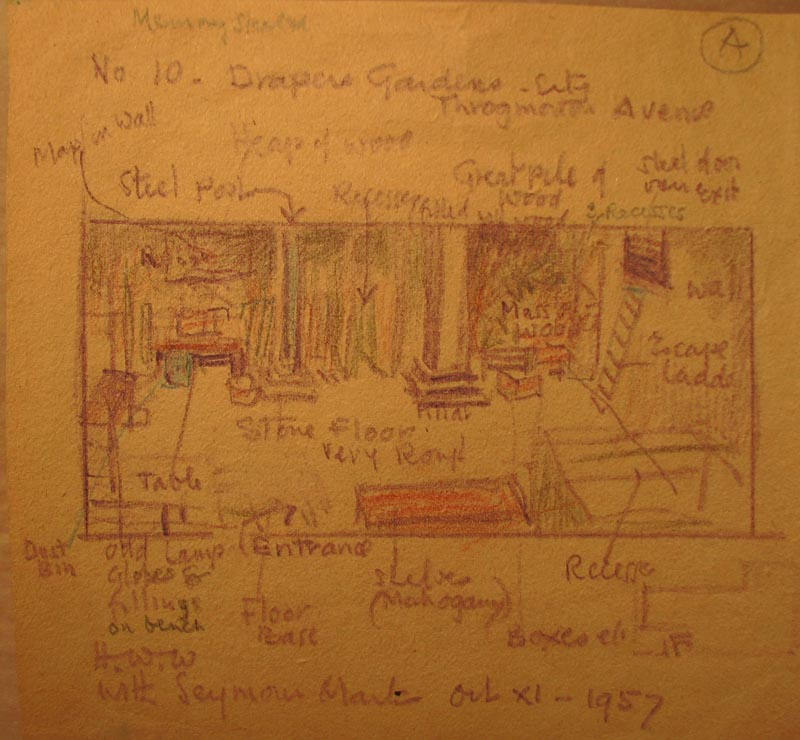 Memory Sketch
A
No 10 - Drapers Gardens - City
Throgmorton Avenue
Map on Wall
Heap of wood
Steel Post
Recesses
filled
Great Pile of
Wood
Steel door
Exit
& Recesses
Wall
Mass of
Wood
Escape
Ladder
Pillar
Stone Floor
Very Rough
Table
Dust
Bin
Odd Lamp
Globes &
fillings
on bench
(Entrance
Floor
Base
Shelves
(Mahogany)
Recesses
Boxes etc
H.W.W
with Seymour Oct XI - 1957